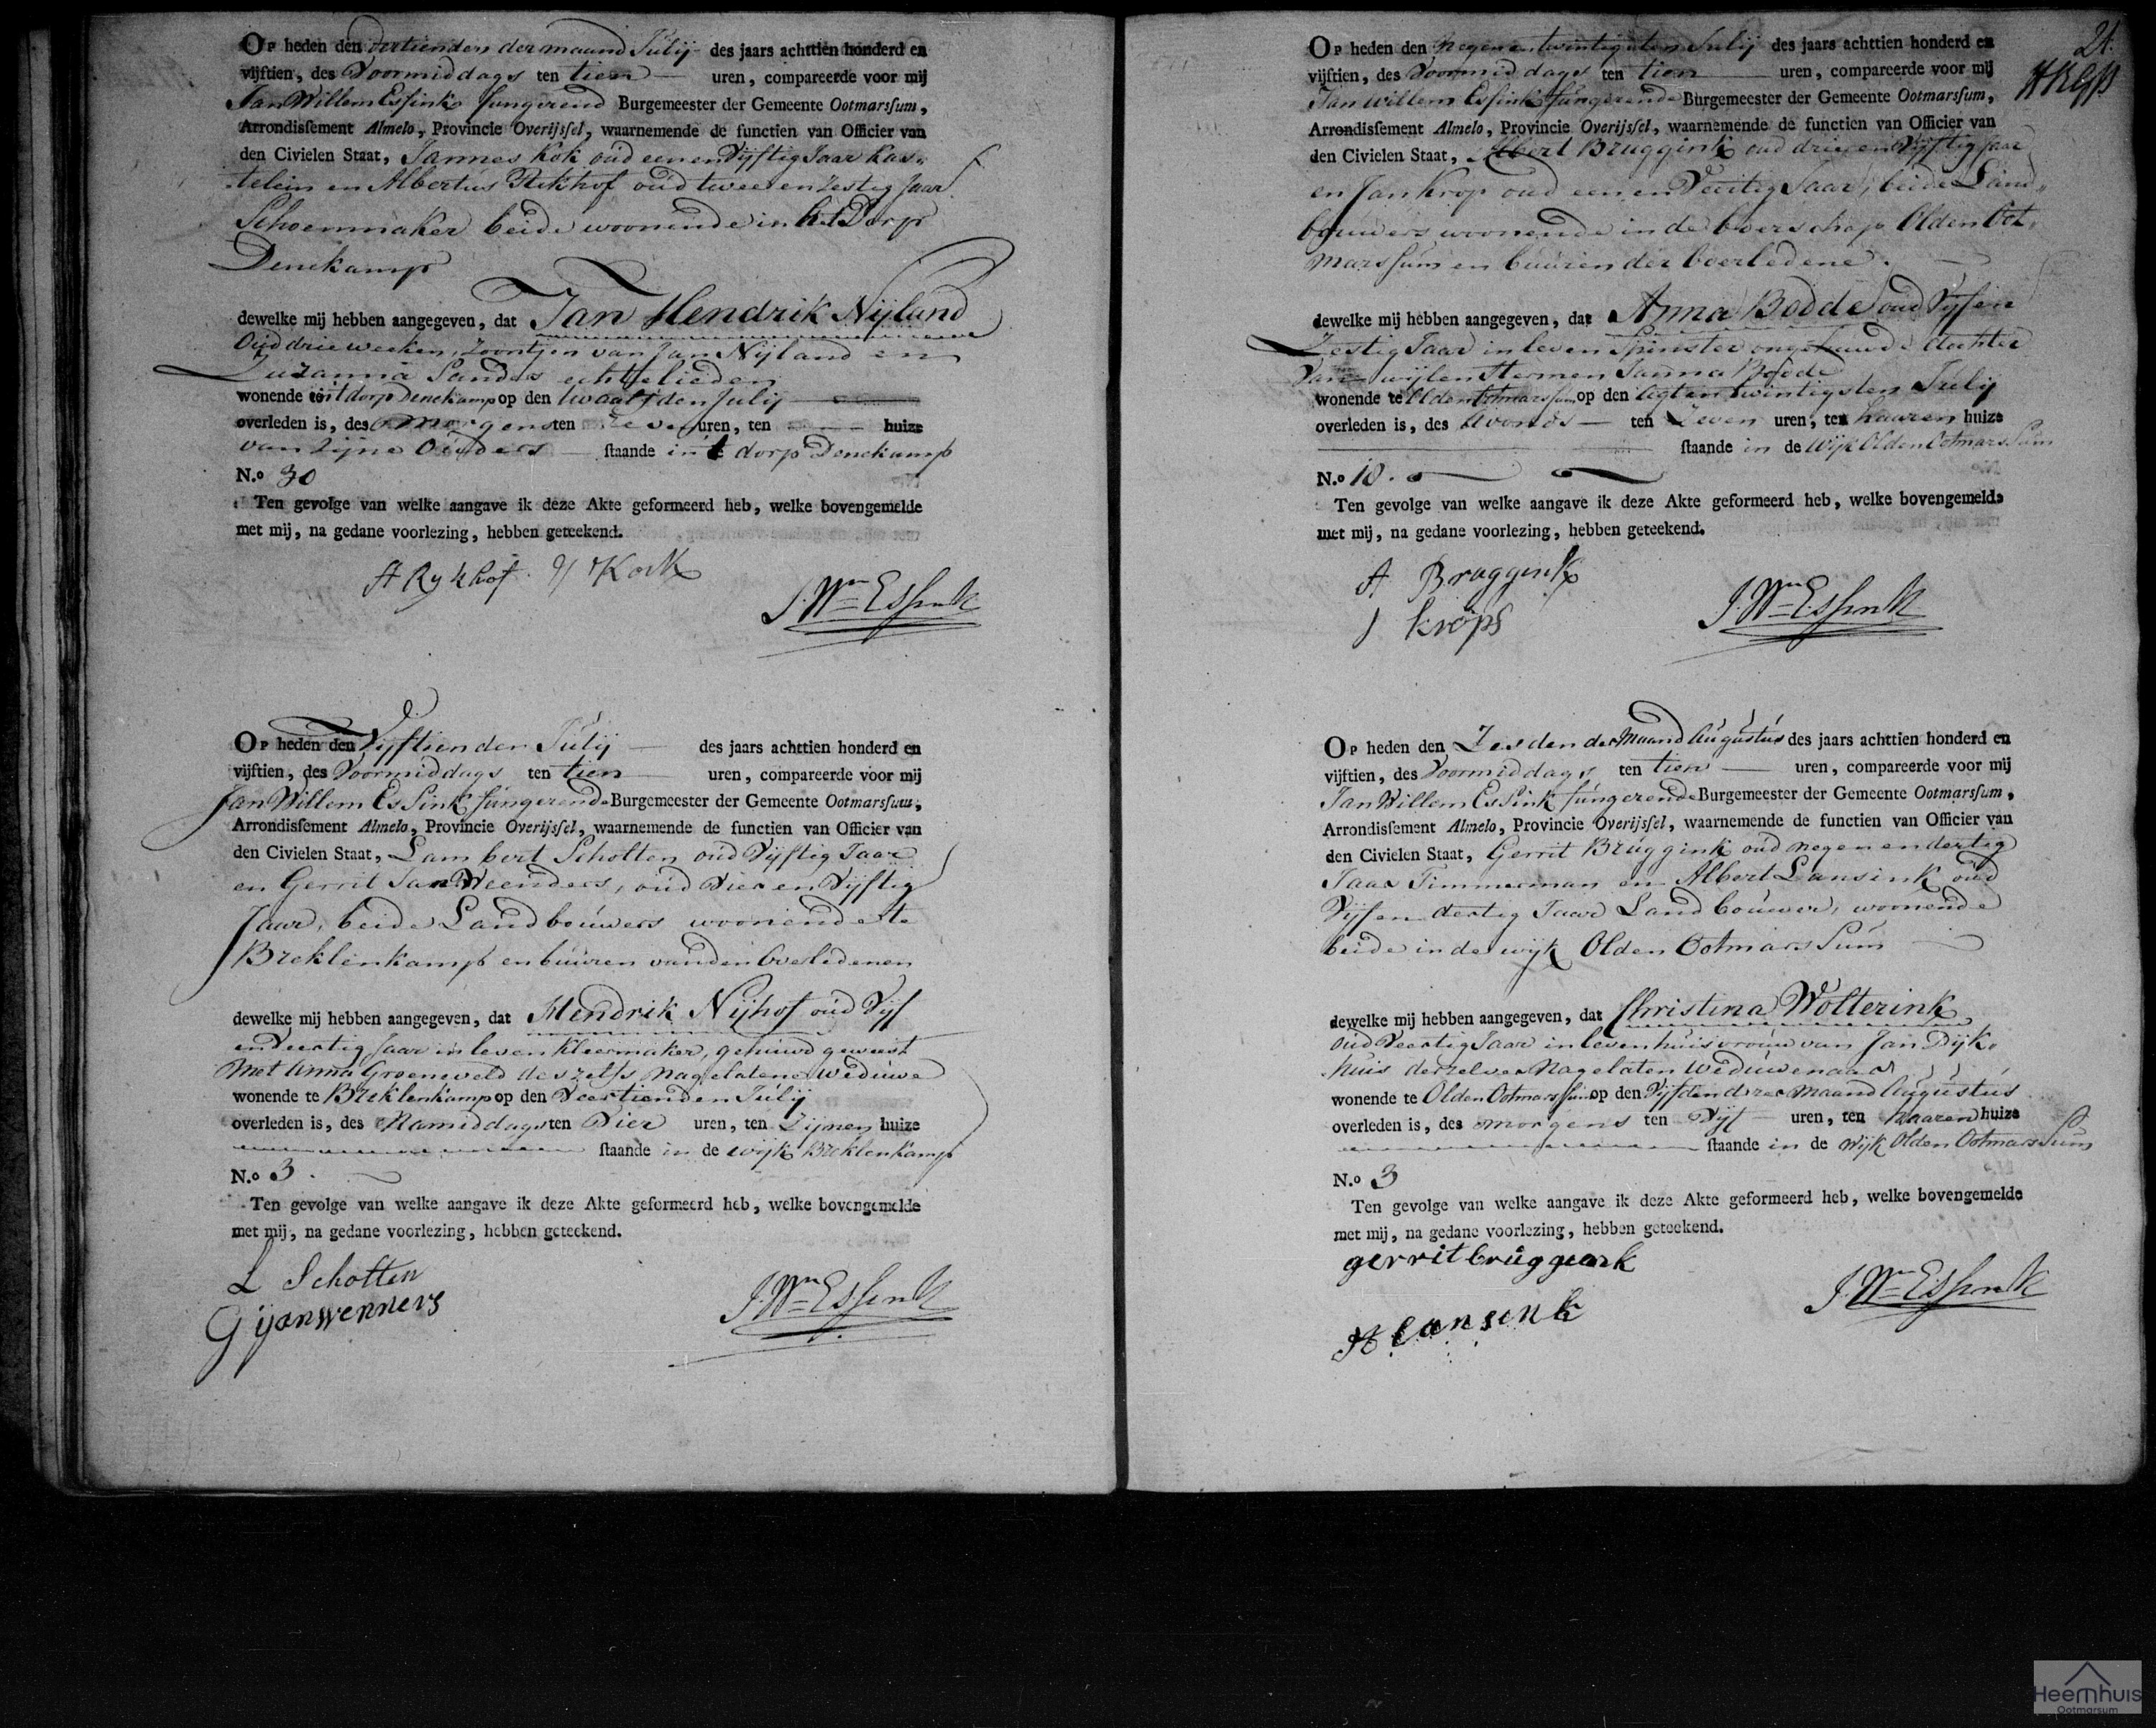 Op heden den dertienden der maand Julij des jaars achttien honderd en
vijftien, des Voormiddags ten tien uren, compareerde voor mij
Jan Willem Essink fungerend Burgemeester der Gemeente Ootmarssum,
Arrondissement Almelo, Provincie Overijssel, waarnemende de functien van Officier van
den Civielen Staat, Jannes Kok oud een en Vijftig Jaar Kas-
telein en Albertus Rikhof oud twee en zestig Jaar
Schoenmaker beide woonende in het Dorp
Denekamp
dewelke mij hebben aangegeven, dat Jan Hendrik Nijland
Oud drie weeken, Zoontjen van Jan Nijland en
Zuzanna Sanders echtelieden
wonende in't dorp Denekamp op den twaalfden Julij
overleden is, des Morgens ten zeven uren, ten huize
van zijne Ouders staande in 't dorp Denekamp
N.o 30
Ten gevolge van welke aangave ik deze Akte geformeerd heb, welke bovengemelde
met mij, na gedane voorlezing, hebben geteekend.
A Rykhof J Kock
J. Wm Essink
Op heden den Vijftienden Julij des jaars achttien honderd en
vijftien, des Voormiddags ten tien uren, compareerde voor mij
Jan Willem Essink fungerende Burgemeester der Gemeente Ootmarssum,
Arrondissement Almelo, Provincie Overijssel, waarnemende de functien van Officier van
den Civielen Staat, Lambert Scholten oud Vijftig Jaar
en Gerrit Jan Weenders, oud Vier en Vijftig
Jaar, beide Landbouwers woonende te
Breklenkamp en buuren van den Overledenen
dewelke mij hebben aangegeven, dat Hendrik Nijhof oud Vijf
en Veertig Jaar in leven Kleermaker, gehuwd geweest
Met Anna Groeneveld deszelfs Nagelatene Weduwe
wonende te Breklenkamp op den Veertienden Julij
overleden is, des Namiddags ten Vier uren, ten Zijnen huize
staande in de wijk Breklenkamp
N.o 3.
Ten gevolge van welke aangave ik deze Akte geformeerd heb, welke bovengemelde
met mij, na gedane voorlezing, hebben geteekend.
L Scholten
G ijan wenners
J. Wm Essink
21.
Op heden den Negenentwintigsten Julij des jaars achttien honderd en
vijftien, des Voormiddags ten tien uren, compareerde voor mij
Jan Willem Essink fungerende Burgemeester der Gemeente Ootmarssum,
Arrondissement Almelo, Provincie Overijssel, waarnemende de functien van Officier van
den Civielen Staat, Albert Bruggink oud drie en Vijftig Jaar
en Jan Krop oud een en Veertig Jaar, beide Land-
bouwers woonende in de boerschap Olden Oot-
marssum en buuren der Overledene.
dewelke mij hebben aangegeven, dat Anna Bodde oud Vijf en
Zestig Jaar in leven Spinster ongehuwde dochter
van wijlen Hermen Janna Bodde
wonende te Olden Ootmarssum op den Agt en twintigsten Julij
overleden is, des Avonds ten Zeven uren, ten haaren huize
staande in de Wijk Olden Ootmarssum
N.o 18.
Ten gevolge van welke aangave ik deze Akte geformeerd heb, welke bovengemelde
met mij, na gedane voorlezing, hebben geteekend.
A Bruggink
J Krops
J. Wm Essink
Op heden den Zesden der Maand Augustus des jaars achttien honderd en
vijftien, des Voormiddags ten tien uren, compareerde voor mij
Jan Willem Essink fungerende Burgemeester der Gemeente Ootmarssum,
Arrondissement Almelo, Provincie Overijssel, waarnemende de functien van Officier van
den Civielen Staat, Gerrit Bruggink oud negen en dertig
Jaar Timmerman en Albert Lansink oud
Vijf en dertig Jaar Landbouwer, woonende
beide in de wijk Olden Ootmarssum
dewelke mij hebben aangegeven, dat Christina Wolterink
oud Veertig Jaar in leven huisvrouw van Jan Dijk-
huis derzelver Nagelaten Weduwenaar
wonende te Olden Ootmarssum op den Vijfden der Maand Augustus
overleden is, des morgens ten Vijf uren, ten haaren huize
staande in de Wijk Olden Ootmarssum
N.o 3
Ten gevolge van welke aangave ik deze Akte geformeerd heb, welke bovengemelde
met mij, na gedane voorlezing, hebben geteekend.
gerrit bruggenk
A lansink
J. Wm Essink
Heemhuis
Ootmarsum